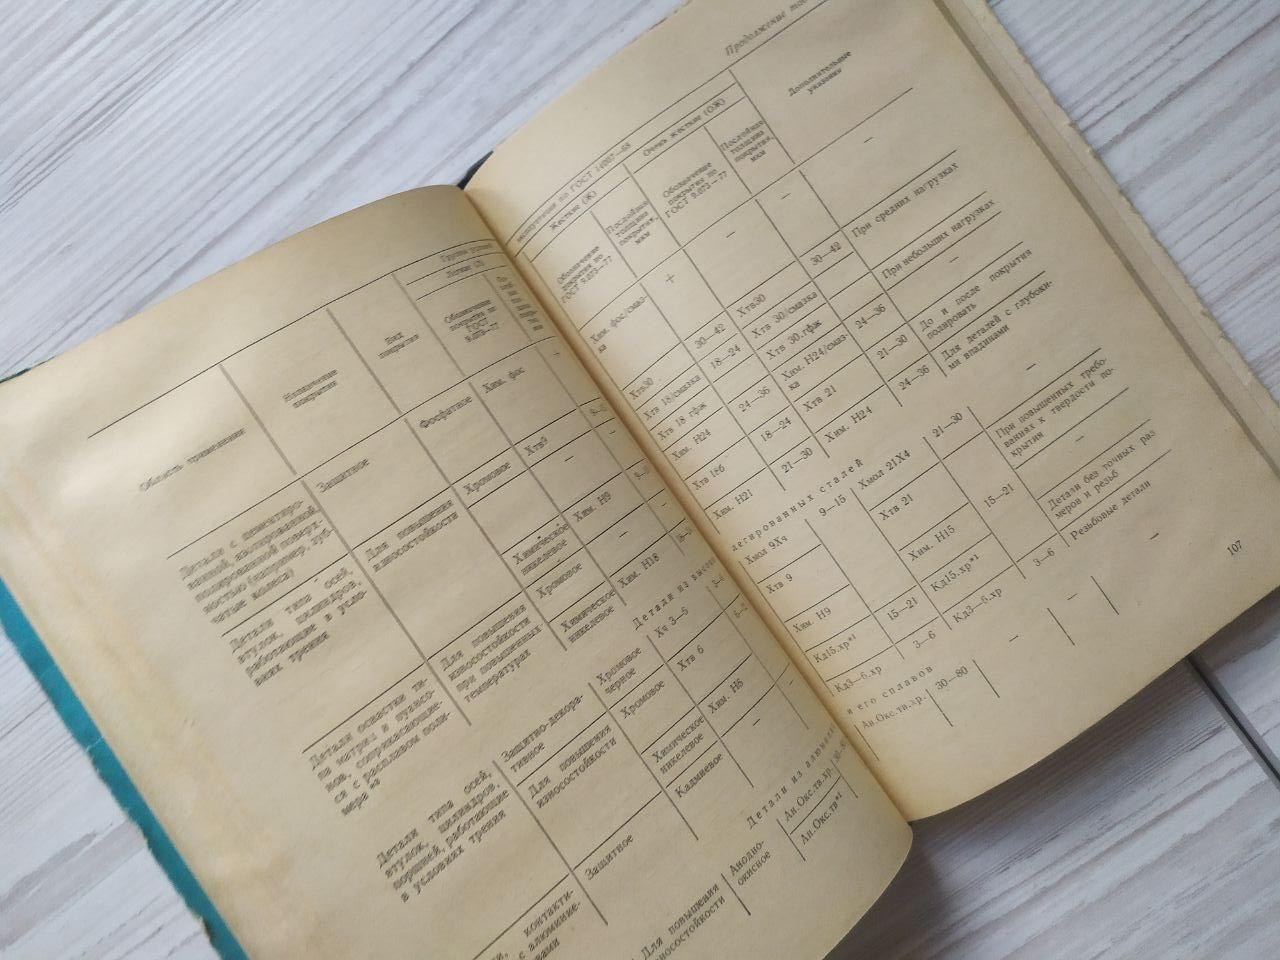 Группа услови
Легкие (Л)
Область применения
Назначение
покрытия
Вид
покрытия
Обозначение
покрытия по
ГОСТ
9.073—77
Детали с цементиро-
ванной, азотированной
полированной поверх-
ностью (например, зуб-
чатые колеса)
Защитное
Фосфатное
Хим. фос
Детали типа осей,
втулок, цилиндров,
работающие в усло-
виях трения
Для повышения
износостойкости
Хромовое
Хтв9
—
Химическое
никелевое
Хим. Н9
Детали оснастки ти-
па матриц и пуансо-
нов, соприкасающие-
ся с расплавом поли-
мера
Для повышения
износостойкости
при повышенных
температурах
Хромовое
—
Химическое
никелевое
Хим. Н18
Детали из высоко
Детали типа осей,
втулок, цилиндров,
поршней, работающие
в условиях трения
Защитно-декора-
тивное
Хромовое
черное
Хч 3—6
Для повышения
износостойкости
Хромовое
Хтв 6
Химическое
никелевое
Хим. Н6
контакти-
с алюмине-
Защитное
Кадмиевое
—
Детали из алюмин
Для повышения
износостойкости
Анодно-
окисное
Ан.Окс.тв.хр.
Ан.Окс.тв*1
Продолжение
эксплуатации по ГОСТ 14007—68
Жесткие (Ж)
Очень жесткие (ОЖ)
Дополнительные
указания
Обозначение
покрытия по
ГОСТ 9.073—77
Послойная
толщина
покрытия,
мкм
Обозначение
покрытия по
ГОСТ 9.073—77
Послойная
толщина
покрытия,
мкм
Хим. фос/смаз-
ка
+
—
—
—
Хтв30
30—42
Хтв30
30—42
При средних нагрузках
Хтв 18/смазка
18—24
Хтв 30/смазка
При небольших нагрузках
Хтв 18 гфж
Хтв 30.гфж
Хим. Н24
24—36
Хим. Н24/смаз-
ка
24—36
До и после покрытия
полировать
Хтв 18б
18—24
Хтв 21
21—30
Для деталей с глубоки-
ми впадинами
Хим. Н21
21—30
Хим. Н24
24—36
легированных сталей
Хмол 9Хч
9—15
Хмол 21Х4
21—30
При повышенных требо-
ваниях к твердости по-
крытия
Хтв 9
Хтв 21
—
Хим. Н9
Хим. Н15
15—21
Детали без точных раз
меров и резьб
Кд15.хр*1
15—21
Кд15.хр*1
Резьбовые детали
Кд3—6.хр
3—6
Кд3—6.хр
3—6
и его сплавов
Ан.Окс.тв.хр.
30—80
—
—
—
107